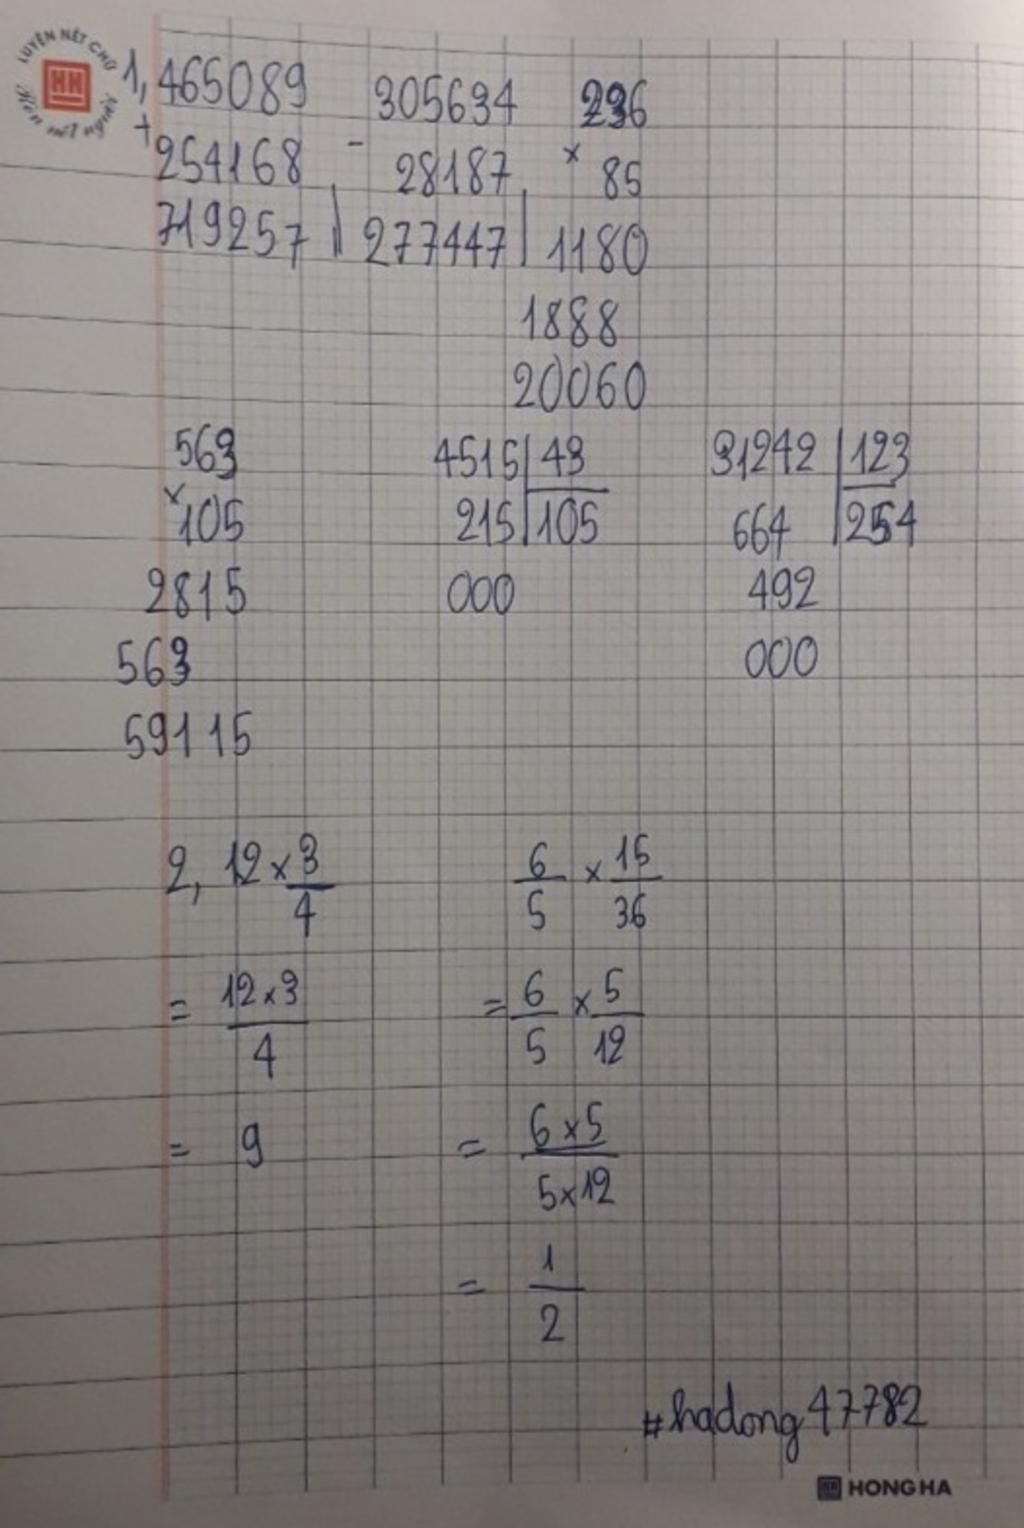 LUYỆN NÉT CHỮ
HH
Rèn nết người
1, 465089 305634 236
+ 254168 - 28187 × 85
719257 277447 1180
1888
20060
563 4515 43 31242 123
× 105 215 105 664 254
2815 000 492
563 000
59115
2, 12 × 3 6 × 15
4 5 36
= 12 × 3 = 6 × 5
4 5 12
= 9 = 6 × 5
5 × 12
= 1
2
#hadong47782
HH HONG HA